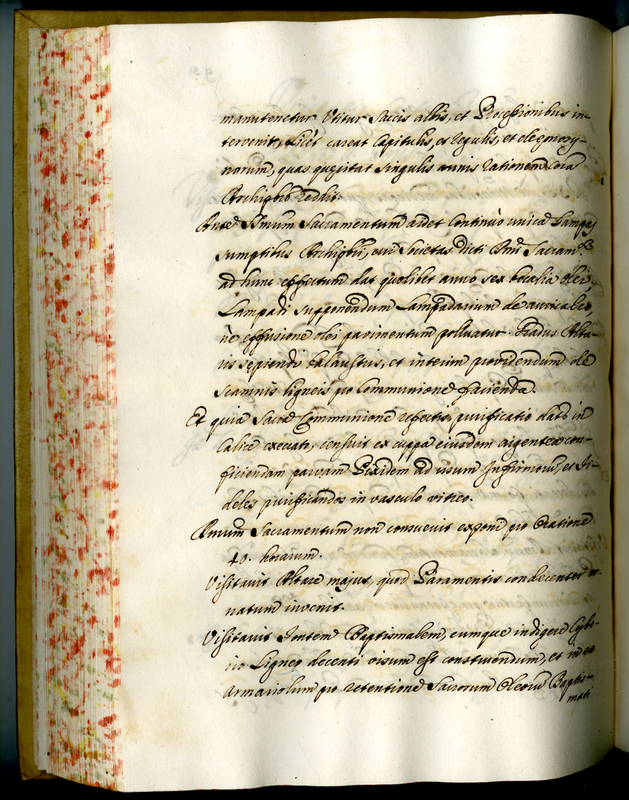 manutenetur Utitur Saccis albis, et Processionibus in-
tervenit, Licèt careat Capitulis, et regulis, et eleemosy-
narum, quas quęritat singulis annis rationem Corã
Archiptro reddit.
Ante Smum Sacramentum ardet continuò unica Lampas
sumptibus Archiptri, cui Societas dicti Smi Sacram.ti
ad hunc effectum dat quolibet anno sex bocalia olei.
Lampadi supponendum Lampadarium de auricalco,
ne effusione olei pavimentum polluatur. Gradus Alta-
ris sepiendi balaustris, et interim providendum de
scamnis ligneis pro Communione facienda.
Et quia Sacra Communione refectis, purificatio datur in
Calice execrato, censuit ex cuppa eiusdem argentea con-
ficiendam parvam Pixidem ad usum Infirmorum, et Fi-
deles purificandos in vasculo vitreo.
Smum Sacramentum non consuevit exponi pro Oratione
40. horarum.
Visitavit Altare majus, quod Paramentis condecenter or-
natum invenit.
Visitavit Fontem Baptismalem, eumque indigere Cybo-
rio Ligneo decenti visum est construendum, et in eo
Armariolum pro retentione Sacrorum Oleorum Baptis-
mati